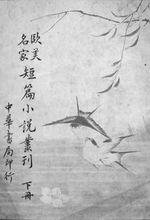 歐美名家
短篇小說叢刊
下冊
中華書局印行